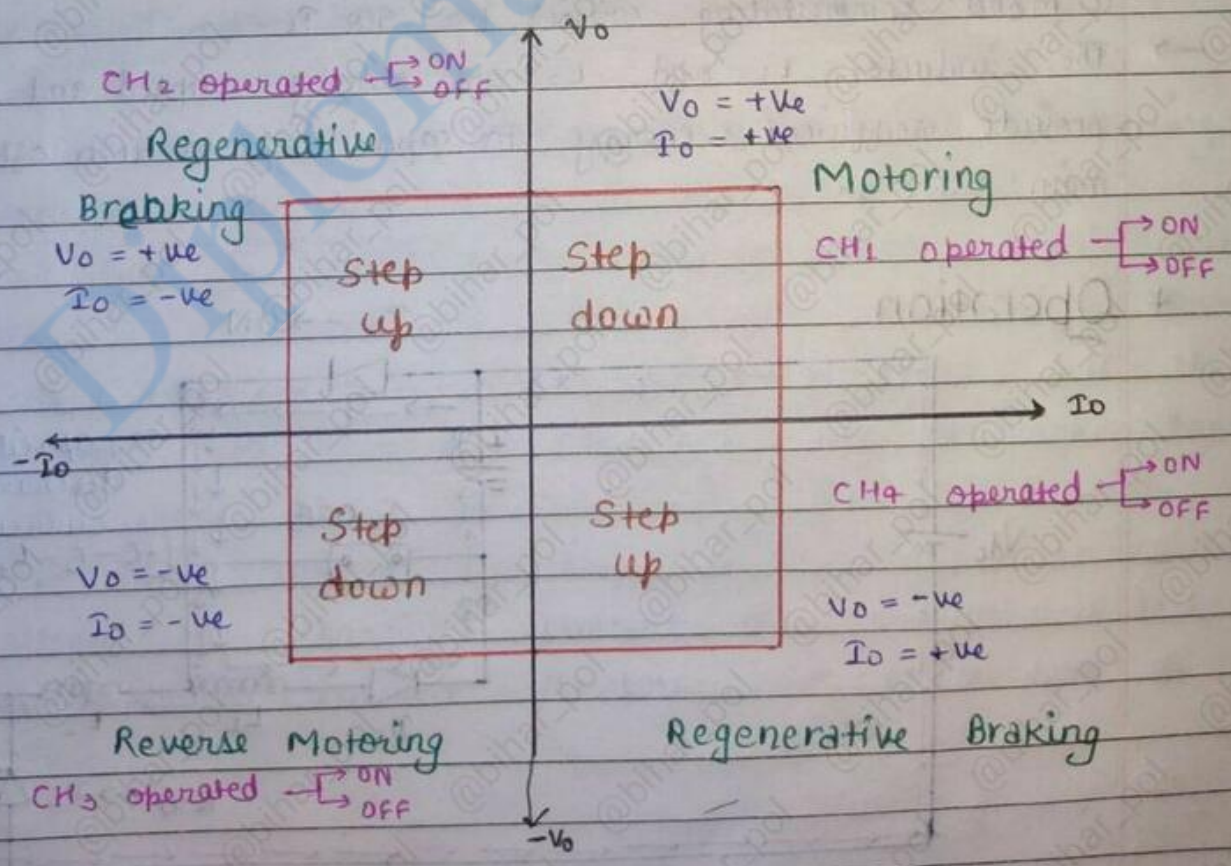 Vo
CH2 operated → ON
→ OFF
Regenerative
Braaking
Vo = +ve
Io = -ve
Vo = +ve
Io = +ve
Motoring
CH1 operated → ON
→ OFF
Step
up
Step
down
Operation
Io
-Io
CH4 operated → ON
→ OFF
Step
down
Step
up
Vo = -ve
Io = -ve
Vo = -ve
Io = +ve
Reverse Motoring
CH3 operated → ON
→ OFF
Regenerative Braking
-Vo
Diplom
@bihar_pol